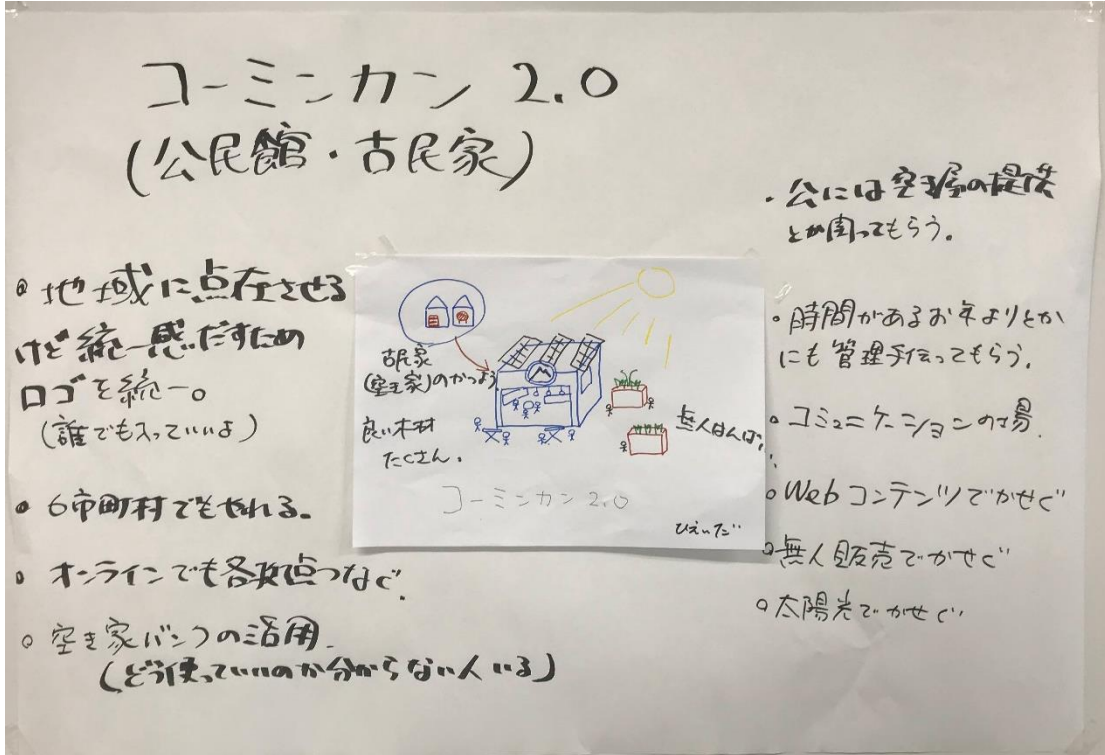 コーミンカン 2.0
(公民館・古民家)
地域に点在させる
けど統一感だすため
ロゴを統一。
(誰でも入っていいよ)
6市町村でもやれる。
オンラインでも各拠点つなぐ.
空き家バンクの活用.
(どう使っていいのか分からない人いる)
古民家
(空き家)のかつよう
良い木材
たくさん.
無人はんばい
コーミンカン 2.0
ひえいだ
・公には空き屋の提供
とか
ってもらう.
・時間があるお年よりとか
にも管理手伝ってもらう.
コミュニケーションの場.
Webコンテンツでかせぐ
無人販売でかせぐ
太陽光でかせぐ